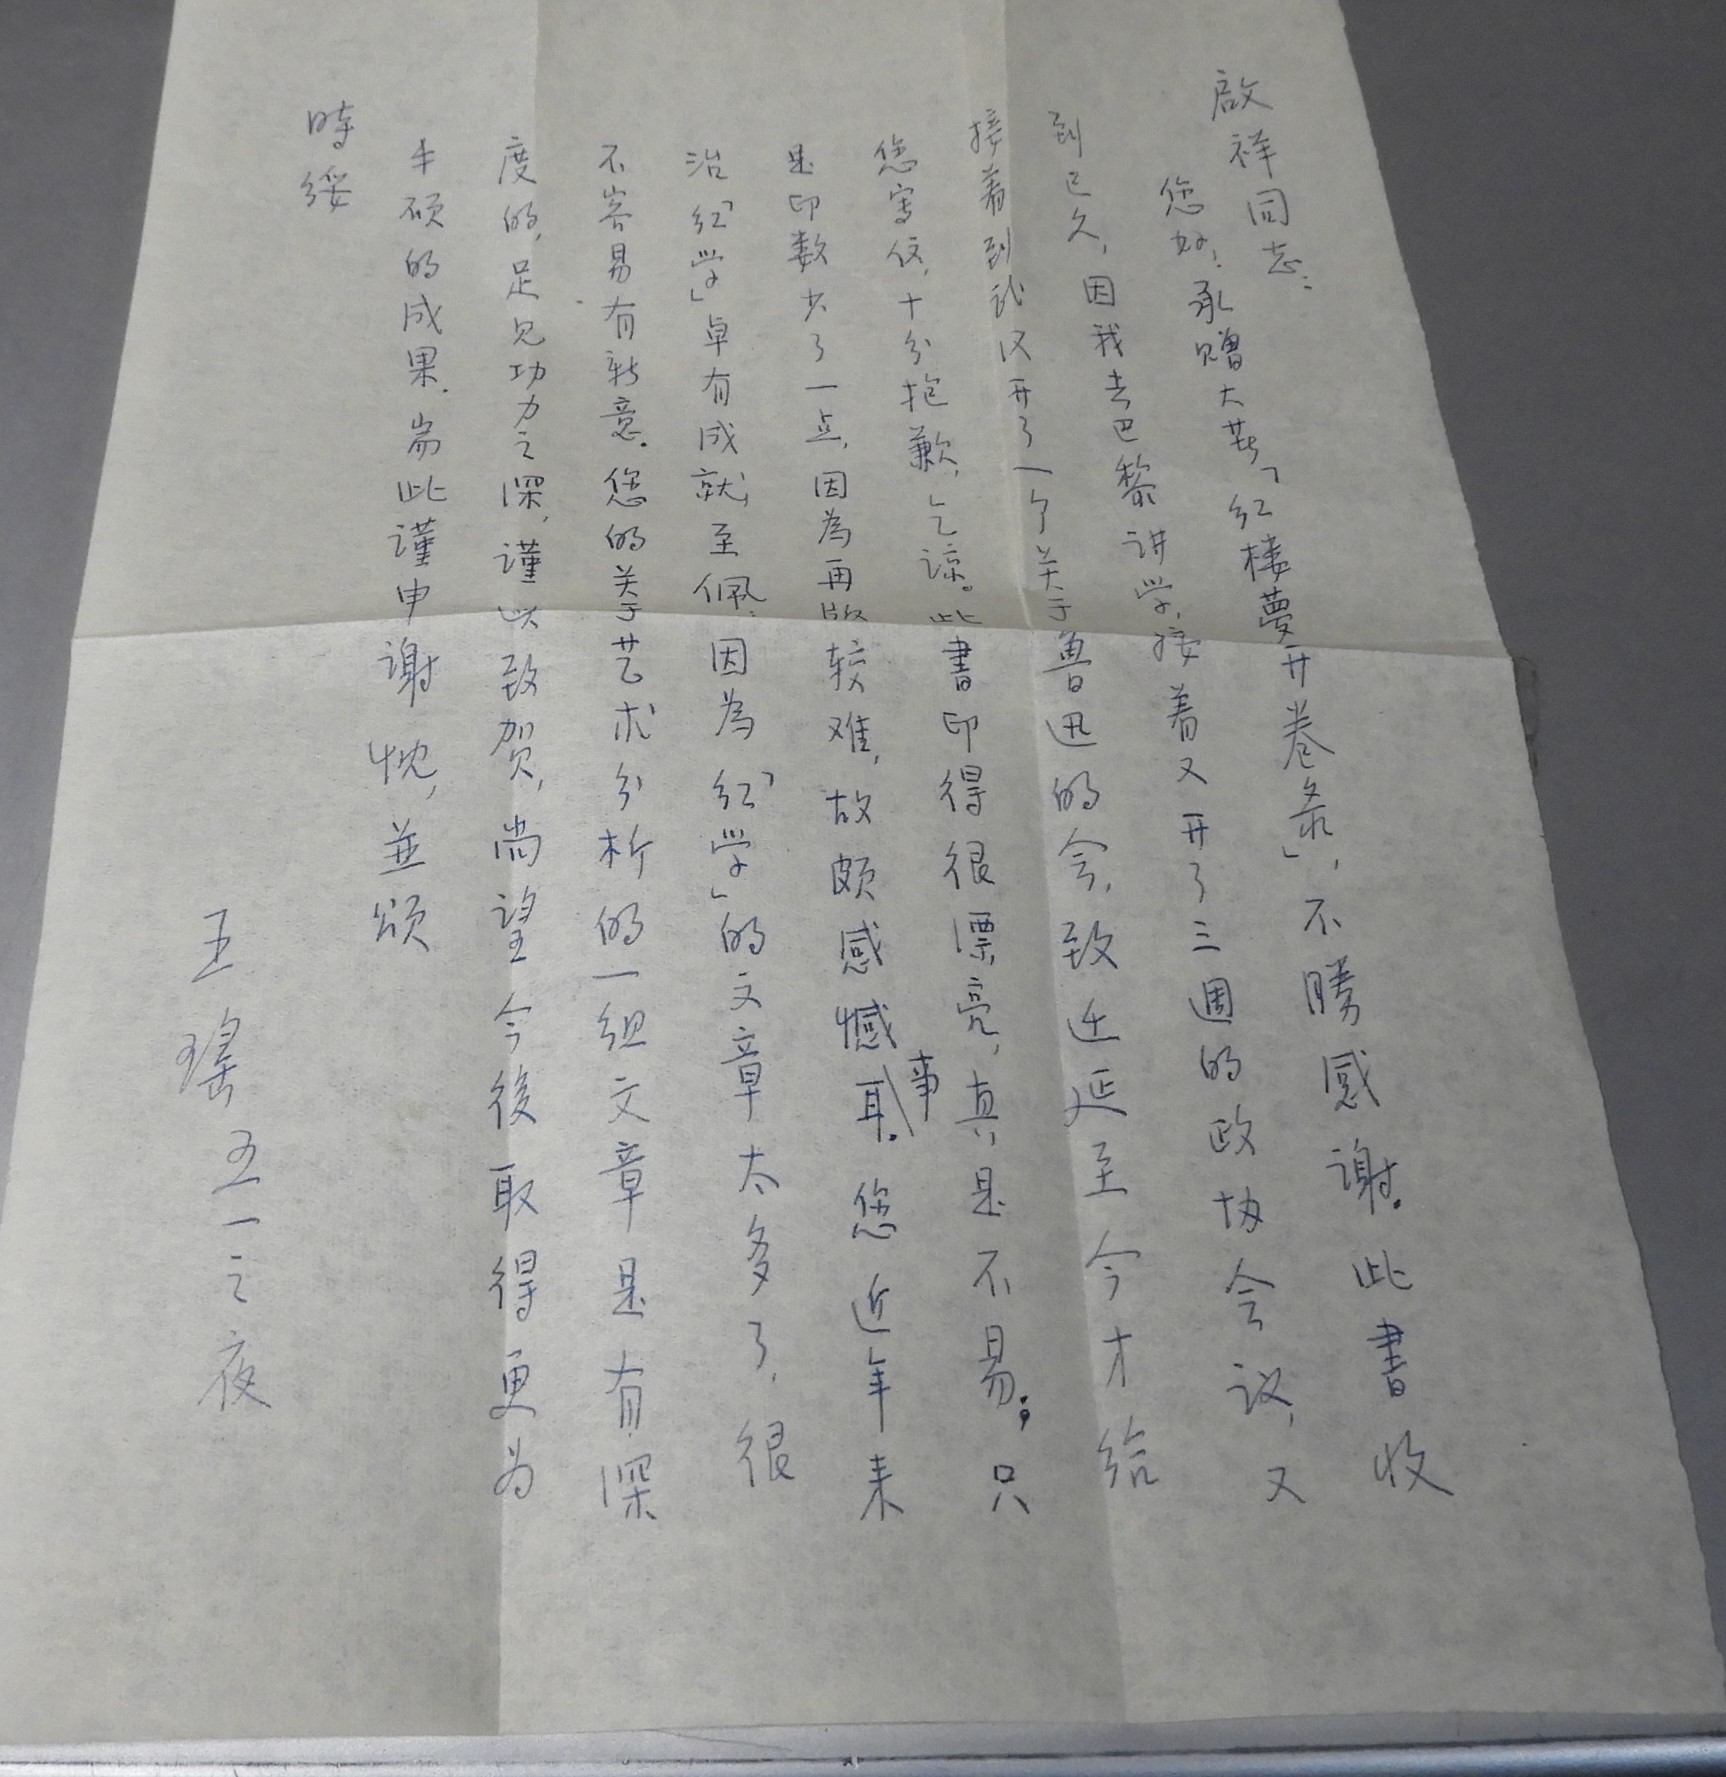 啟祥同志:
您好!承赠大著「红楼夢开卷录」,不勝感谢。此書收
到已久,因我去巴黎讲学,接着又开了三週的政协会议,又
接着到武汉开了一个关于鲁迅的会,致迁延至今才给
您写信,十分抱歉,乞谅。此書印得很漂亮,真是不易。只
是印数少了一点,因為再版较难,故颇感憾事。您近年来
治「红学」卓有成就,至佩。因為「红学」的文章太多了,很
不容易有新意。您的关于艺术分析的一组文章是有深
度的,足见功力之深,谨以致贺,尚望今後取得更为
丰硕的成果。耑此谨申谢忱,並颂
時绥
王瑶 五一之夜